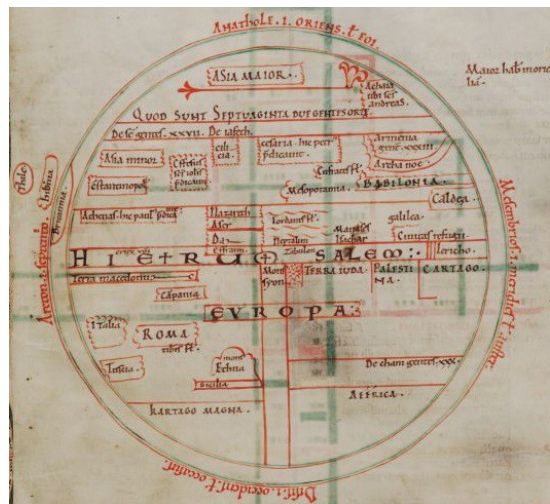 ANATHOLE. I. ORIENS. t EOI.
ASIA MAIOR.
Achaia
ubi sct
andreas.
QUOD SUNT SEPTUAGINTA DUE GENTES ORTE
De sem gentes. XXVII. De iafeth.
Asia minor.
cili
cia
cesaria. hic petr
pdicavit.
Armenia
gens. XXXIII
Archa noe.
Effesus
pdicavit
Constantinopol
Eufrates fl.
Mesopotamia.
BABILONIA
Caldea
Athenas. hic paul pdic
Nazareth
Aser
Dan
Effraim.
Iordanis fl.
Neptalim
Zabulon
Manases
Isachar
galilea
Civitas refugii
Iericho.
HIERUSALEM:
Terra macedonia
Mons
syon
TERRA IUDA.
PALESTI
NA.
CARTAGO.
Capania
EUROPA:
Italia
ROMA
tiberis fl.
Tuscia
mons
Ethna
Sicilia
De cham gentes. XXX.
AFFRICA.
KARTAGO MAGNA.
Thile
Hibernia
Britannia.
Arcton. I. septentrio.
Mesembrios. I. meridies t auster.
Disis. I. occidens t occasus.